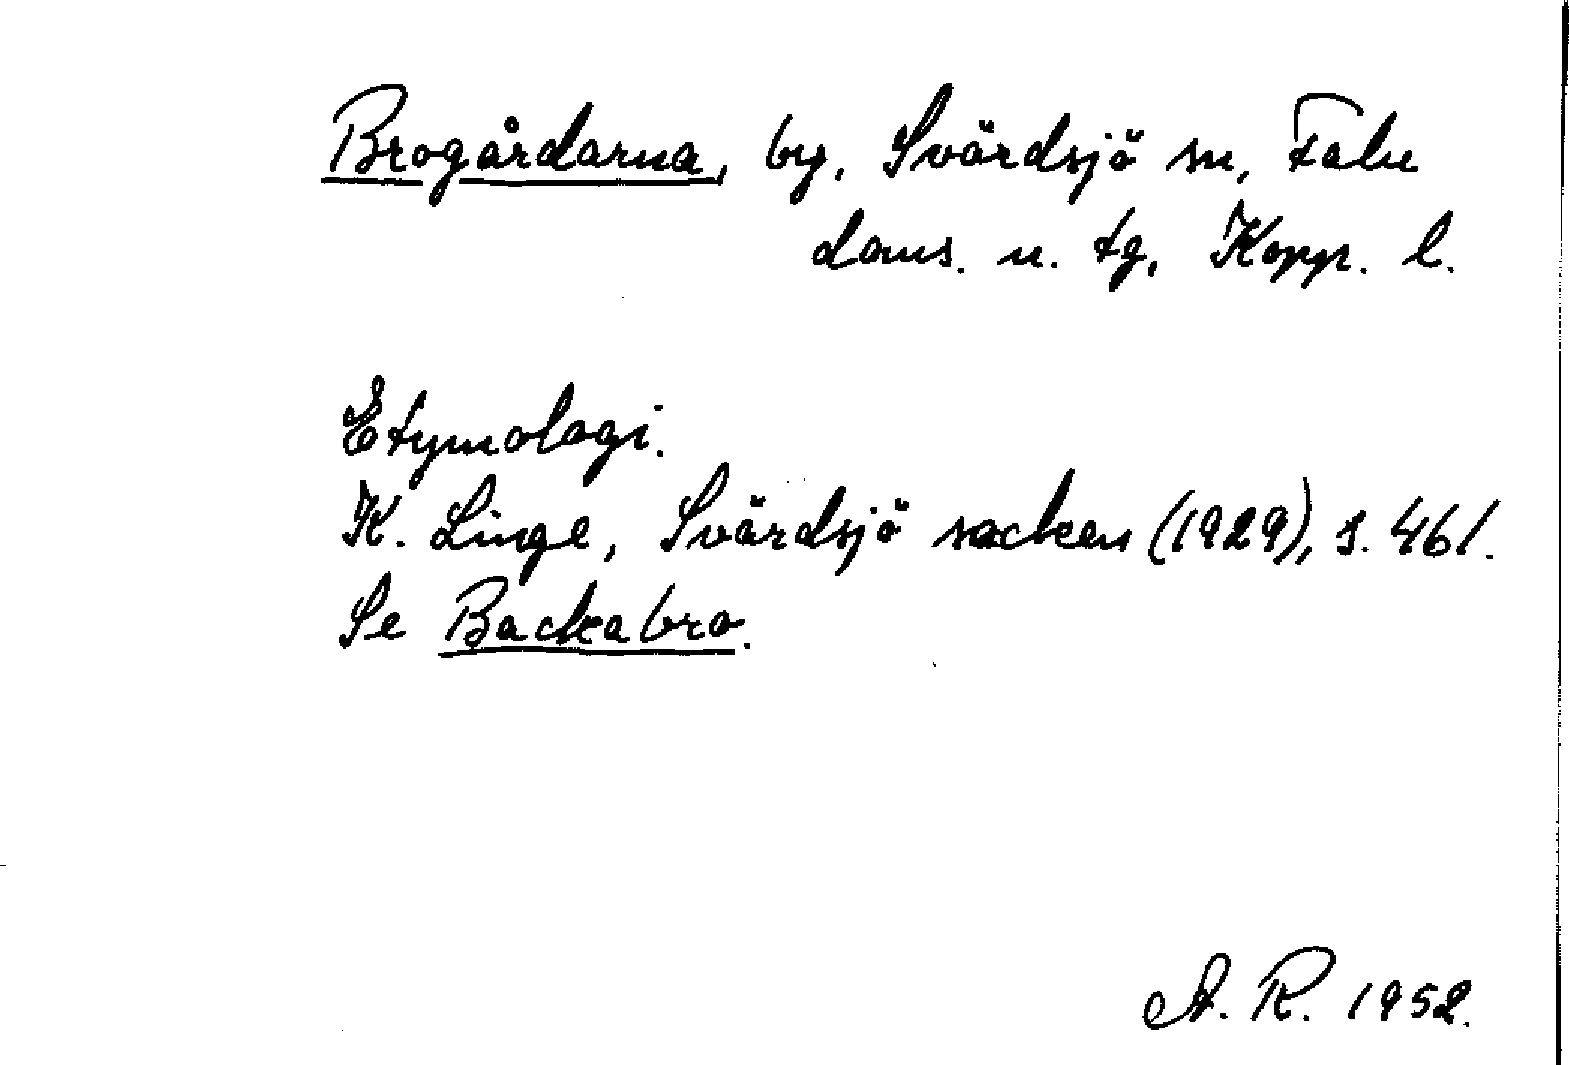 Brogårdarna, by, Svärdsjö sn, Falu
doms. n. tg, Kopp. l.
Etymologi.
K. Linge, Svärdsjö socken (1929), s. 461.
Se Backabro.
A. R. 1952.